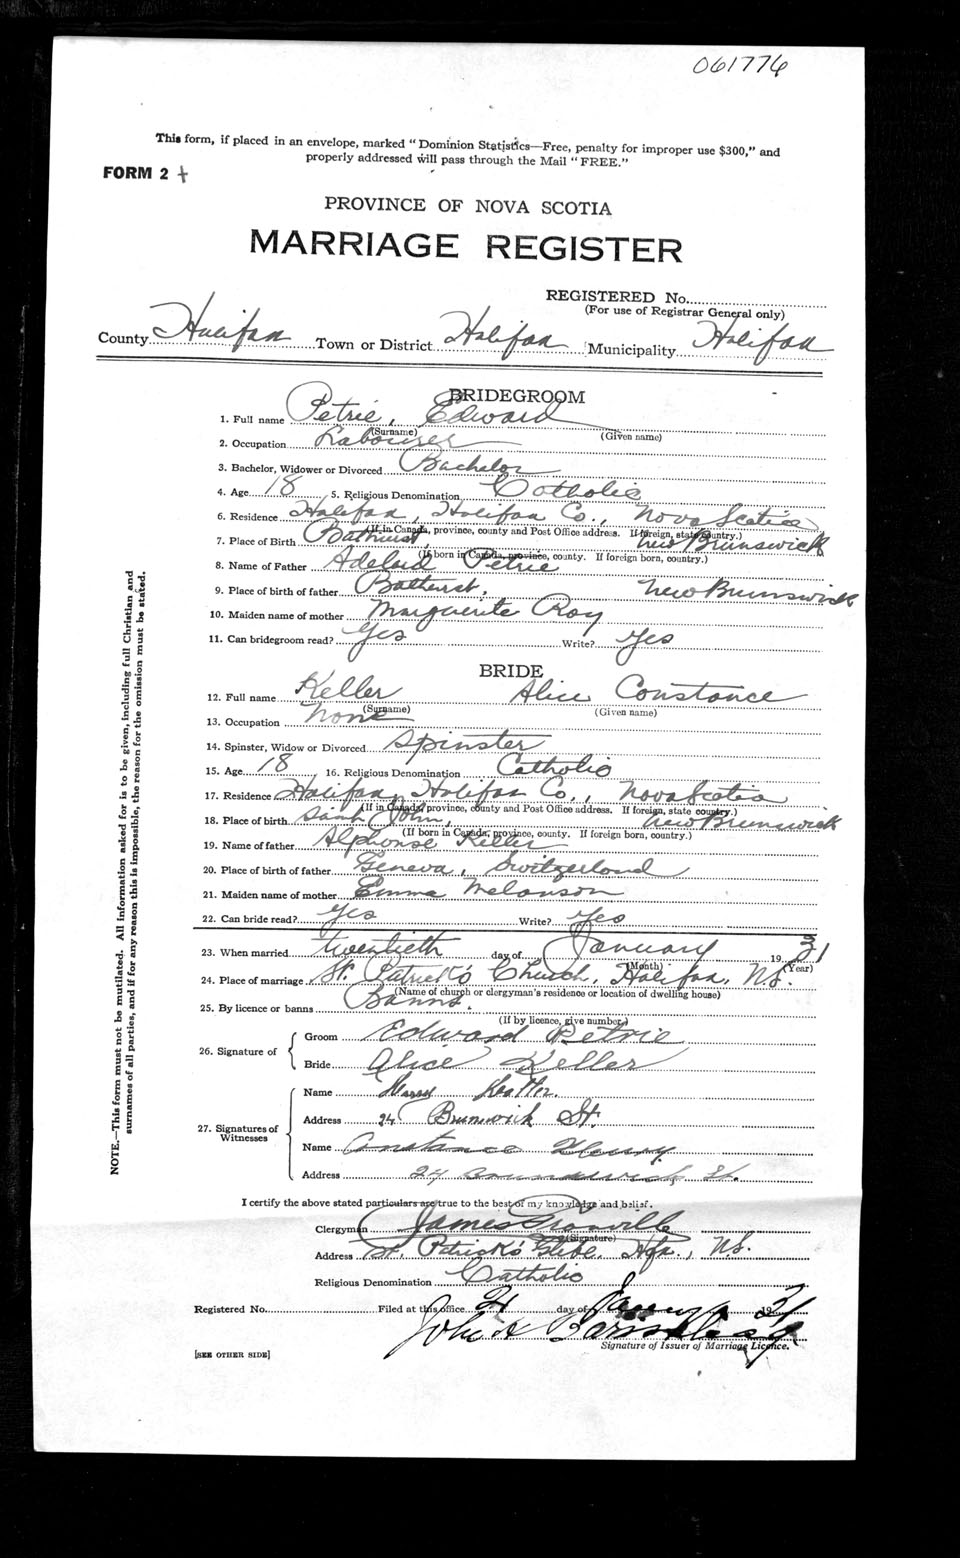 061776
This form, if placed in an envelope, marked "Dominion Statistics—Free, penalty for improper use $300," and
properly addressed will pass through the Mail "FREE."
FORM 2
PROVINCE OF NOVA SCOTIA
MARRIAGE REGISTER
REGISTERED No.
(For use of Registrar General only)
County Halifax Town or District Halifax Municipality Halifax
BRIDEGROOM
1. Full name Petrie, Edward
(Surname) (Given name)
2. Occupation Labourer
3. Bachelor, Widower or Divorced Bachelor
4. Age 18 5. Religious Denomination Catholic
6. Residence Halifax, Halifax Co., Nova Scotia
(If in Canada, province, county and Post Office address. If foreign, state country.)
7. Place of Birth Bathurst, New Brunswick
(If born in Canada, province, county. If foreign born, country.)
8. Name of Father Adelard Petrie
9. Place of birth of father Bathurst, New Brunswick
10. Maiden name of mother Marguerite Roy
11. Can bridegroom read? Yes Write? Yes
BRIDE
12. Full name Keller Alice Constance
(Surname) (Given name)
13. Occupation None
14. Spinster, Widow or Divorced Spinster
15. Age 18 16. Religious Denomination Catholic
17. Residence Halifax, Halifax Co., Nova Scotia
(If in Canada, province, county and Post Office address. If foreign, state country.)
18. Place of birth Saint John, New Brunswick
(If born in Canada, province, county. If foreign born, country.)
19. Name of father Alphonse Keller
20. Place of birth of father Geneva, Switzerland
21. Maiden name of mother Emma Melanson
22. Can bride read? Yes Write? Yes
23. When married twentieth day of January 1931
(Month) (Year)
24. Place of marriage St. Patrick's Church, Halifax, N.S.
(Name of church or clergyman's residence or location of dwelling house)
25. By licence or banns Banns.
(If by licence, give number)
26. Signature of Groom Edward Petrie
Bride Alice Keller
27. Signatures of Witnesses
Name
Address 24 Brunswick St.
Name Constance
Address 24 Brunswick St.
I certify the above stated particulars are true to the best of my knowledge and belief.
Clergyman James Granville
(Signature)
Address St. Patrick's Glebe, Hfx., N.S.
Religious Denomination Catholic
Registered No. Filed at this office 21 day of January 1931
John A
Signature of Issuer of Marriage Licence.
[SEE OTHER SIDE]
NOTE.—This form must not be mutilated. All information asked for is to be given, including full Christian and
surnames of all parties, and if for any reason this is impossible, the reason for the omission must be stated.